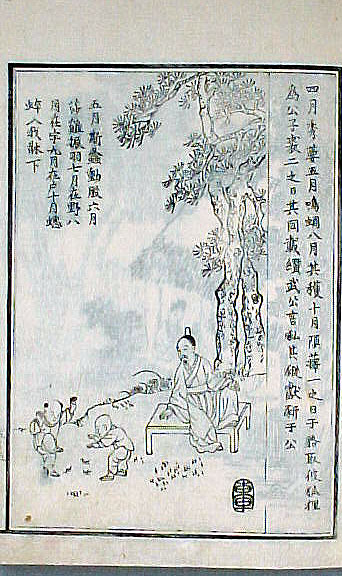 四月秀葽五月鳴蜩八月其穫十月隕蘀一之日于貉取彼狐狸
為公子裘二之日其同載纘武公言私其豵獻豣于公
五月斯螽動股六月
莎雞振羽七月在野八
月在宇九月在户十月蟋
蟀入我牀下